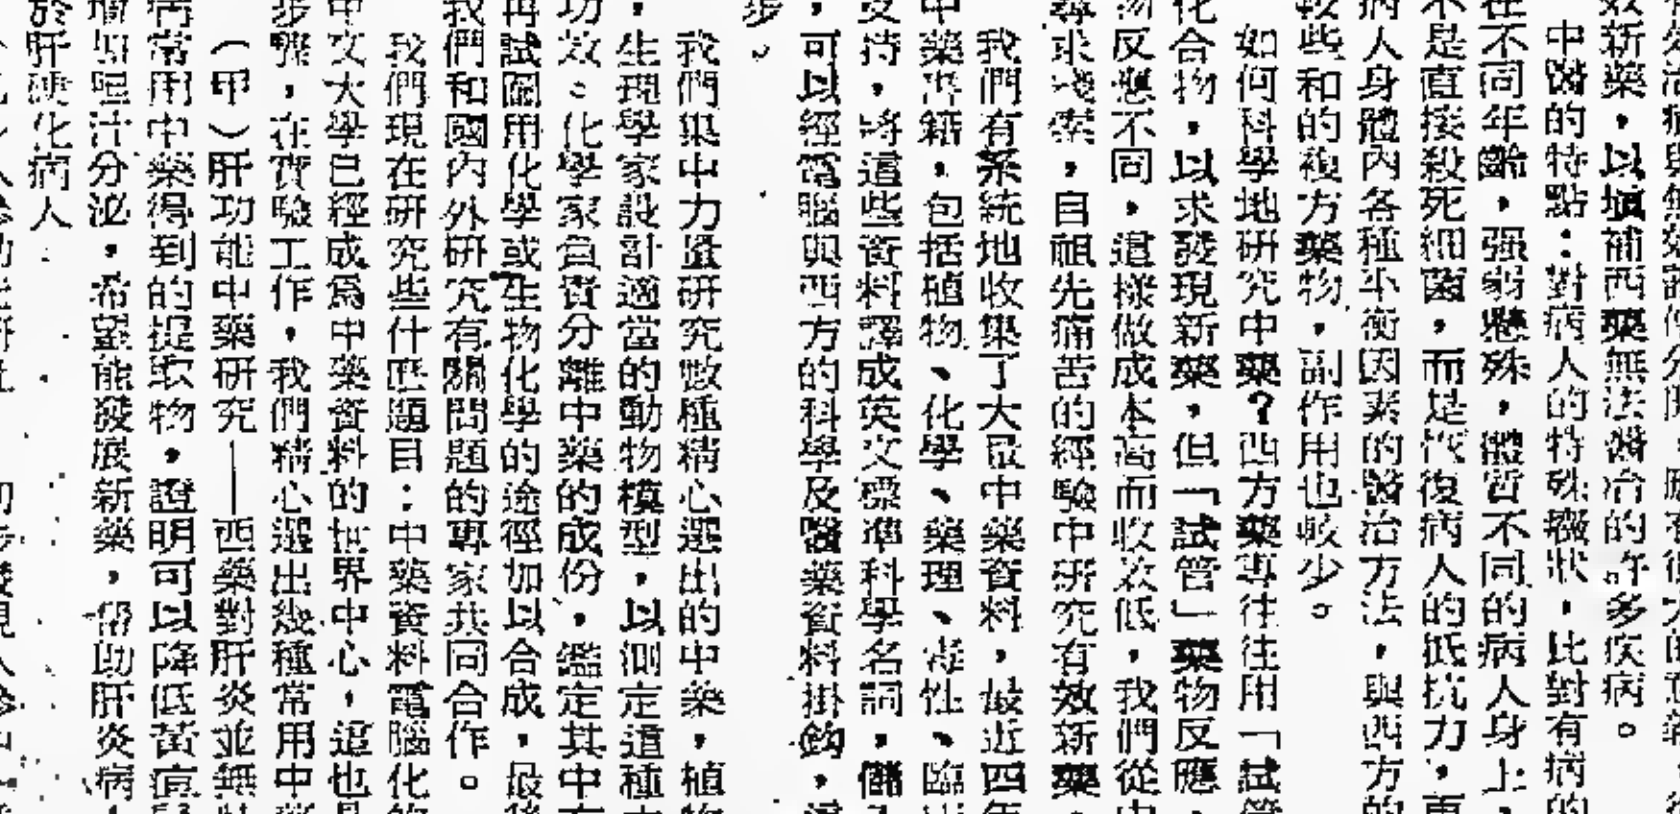 效新藥，以填補西藥無法醫治的許多疾病。
中醫的特點：對病人的特殊徵狀，比對有病的
在不同年齡，强弱懸殊，體質不同的病人身上，
不是直接殺死細菌，而是恢復病人的低抗力，更
病人身體內各種不衡因素的醫治方法，與西方的
較些和的複方藥物，副作用也較少。
如何科學地研究中藥？西方藥專往往用「試管
化合物，以求發現新藥，但「試管」藥物反應，
物反應不同，這樣做成本高而收效低，我們從中
尋求線索，自祖先痛苦的經驗中研究有效新藥，
我們有系統地收集了大量中藥資料，最近四年
中藥書籍，包括植物、化學、藥理、毒性、臨
支持，將這些資料譯成英文標準科學名詞，儲入
，可以經電腦與西方的科學及醫藥資料掛鈎，還
步。
我們集中力量研究數種精心選出的中藥，植物
，生理學家設計適當的動物模型，以測定這種
功效。化學家負責分離中藥的成份，鑑定其中有
再試圖用化學或生物化學的途徑加以合成，最後
我們和國內外研究有關問題的專家共同合作。
我們現在研究些什麼題目：中藥資料電腦化的
中文大學已經成爲中藥資料的世界中心，這也是
步驟，在實驗工作，我們精心選出幾種常用中藥
（甲）肝功能中藥研究——西藥對肝炎並無特
病常用中藥得到的提取物，證明可以降低黃疸
增加胆汁分泌，希望能發展新藥，帮助肝炎病人
於肝硬化病人